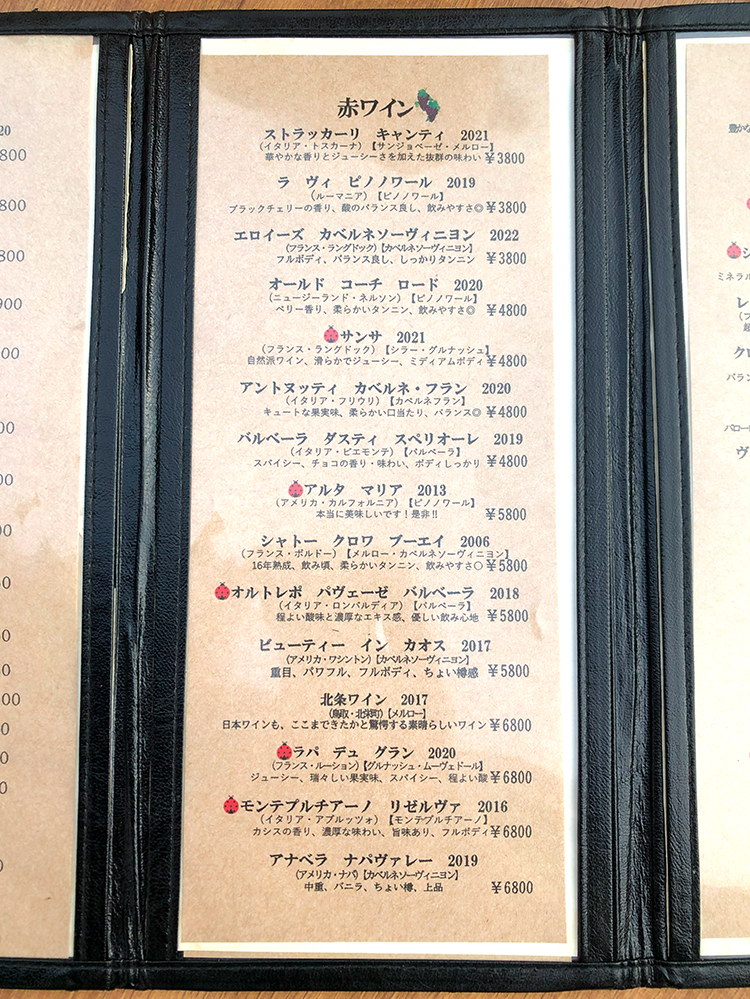 赤ワイン
ストラッカーリ キャンティ 2021
(イタリア・トスカーナ)【サンジョベーゼ・メルロー】
華やかな香りとジューシーさを加えた抜群の味わい ¥3800
ラ ヴィ ピノノワール 2019
(ルーマニア)【ピノノワール】
ブラックチェリーの香り、酸のバランス良し、飲みやすさ◎ ¥3800
エロイーズ カベルネソーヴィニヨン 2022
(フランス・ラングドック)【カベルネソーヴィニヨン】
フルボディ、バランス良し、しっかりタンニン ¥3800
オールド コーチ ロード 2020
(ニュージーランド・ネルソン)【ピノノワール】
ベリー香り、柔らかいタンニン、飲みやすさ◎ ¥4800
サンサ 2021
(フランス・ラングドック)【シラー・グルナッシュ】
自然派ワイン、滑らかでジューシー、ミディアムボディ ¥4800
アントヌッティ カベルネ・フラン 2020
(イタリア・フリウリ)【カベルネフラン】
キュートな果実味、柔らかい口当たり、バランス◎ ¥4800
バルベーラ ダスティ スペリオーレ 2019
(イタリア・ピエモンテ)【バルベーラ】
スパイシー、チョコの香り・味わい、ボディしっかり ¥4800
アルタ マリア 2013
(アメリカ・カルフォルニア)【ピノノワール】
本当に美味しいです！是非‼ ¥5800
シャトー クロワ ブーエイ 2006
(フランス・ボルドー)【メルロー・カベルネソーヴィニヨン】
16年熟成、飲み頃、柔らかいタンニン、飲みやすさ〇 ¥5800
オルトレポ パヴェーゼ バルベーラ 2018
(イタリア・ロンバルディア)【バルベーラ】
程よい酸味と濃厚なエキス感、優しい飲み心地 ¥5800
ビューティー イン カオス 2017
(アメリカ・ワシントン)【カベルネソーヴィニヨン】
重目、パワフル、フルボディ、ちょい樽感 ¥5800
北条ワイン 2017
(鳥取・北栄町)【メルロー】
日本ワインも、ここまできたかと驚愕する素晴らしいワイン ¥6800
ラパ デュ グラン 2020
(フランス・ルーション)【グルナッシュ・ムーヴェドール】
ジューシー、瑞々しい果実味、スパイシー、程よい酸 ¥6800
モンテプルチアーノ リゼルヴァ 2016
(イタリア・アブルッツォ)【モンテプルチアーノ】
カシスの香り、濃厚な味わい、旨味あり、フルボディ ¥6800
アナベラ ナパヴァレー 2019
(アメリカ・ナパ)【カベルネソーヴィニヨン】
中重、バニラ、ちょい樽、上品 ¥6800